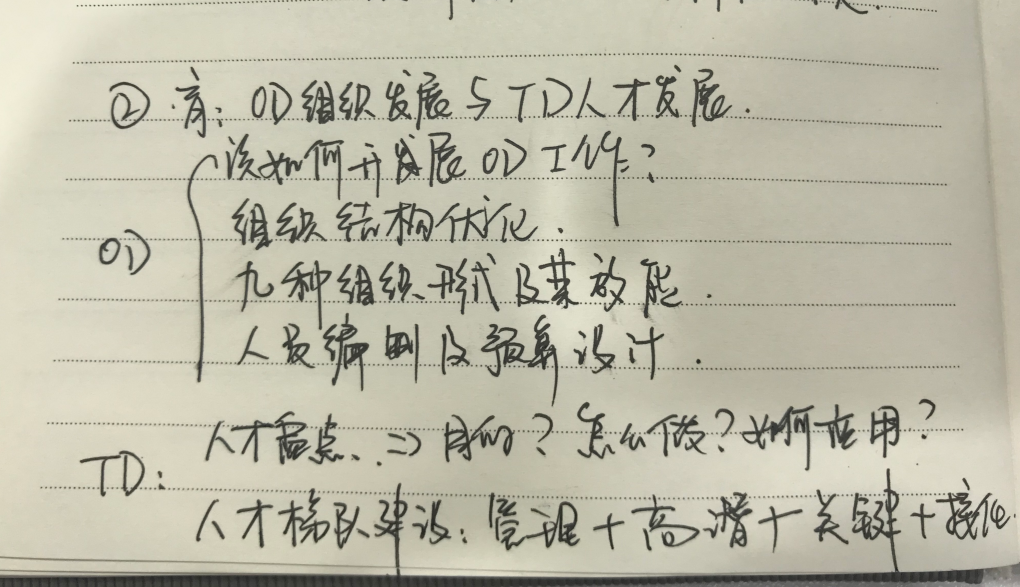 ② 育: OD组织发展与TD人才发展.
该如何开发展OD工作?
组织结构优化.
OD
九种组织形式及其效能.
人员编制及预算设计.
人才盘点. => 目的? 怎么做? 如何应用?
TD:
人才梯队建设: 管理+高潜+关键+接任